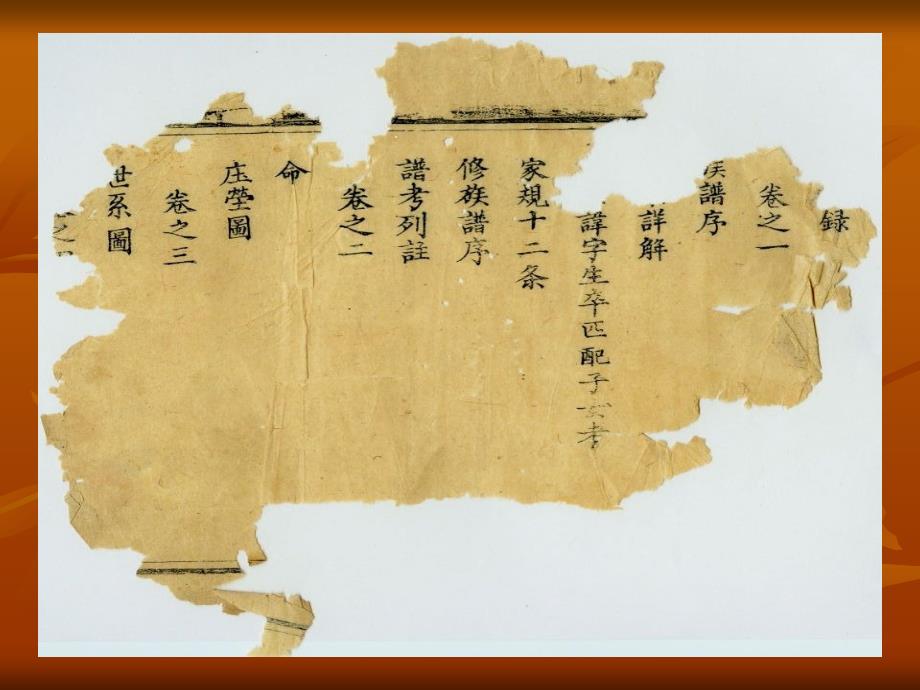 録
卷之一
族譜序
詳解
諱字生卒匹配子女考
家規十二条
修族譜序
譜考列註
卷之二
命
庄塋圖
卷之三
世系圖
之